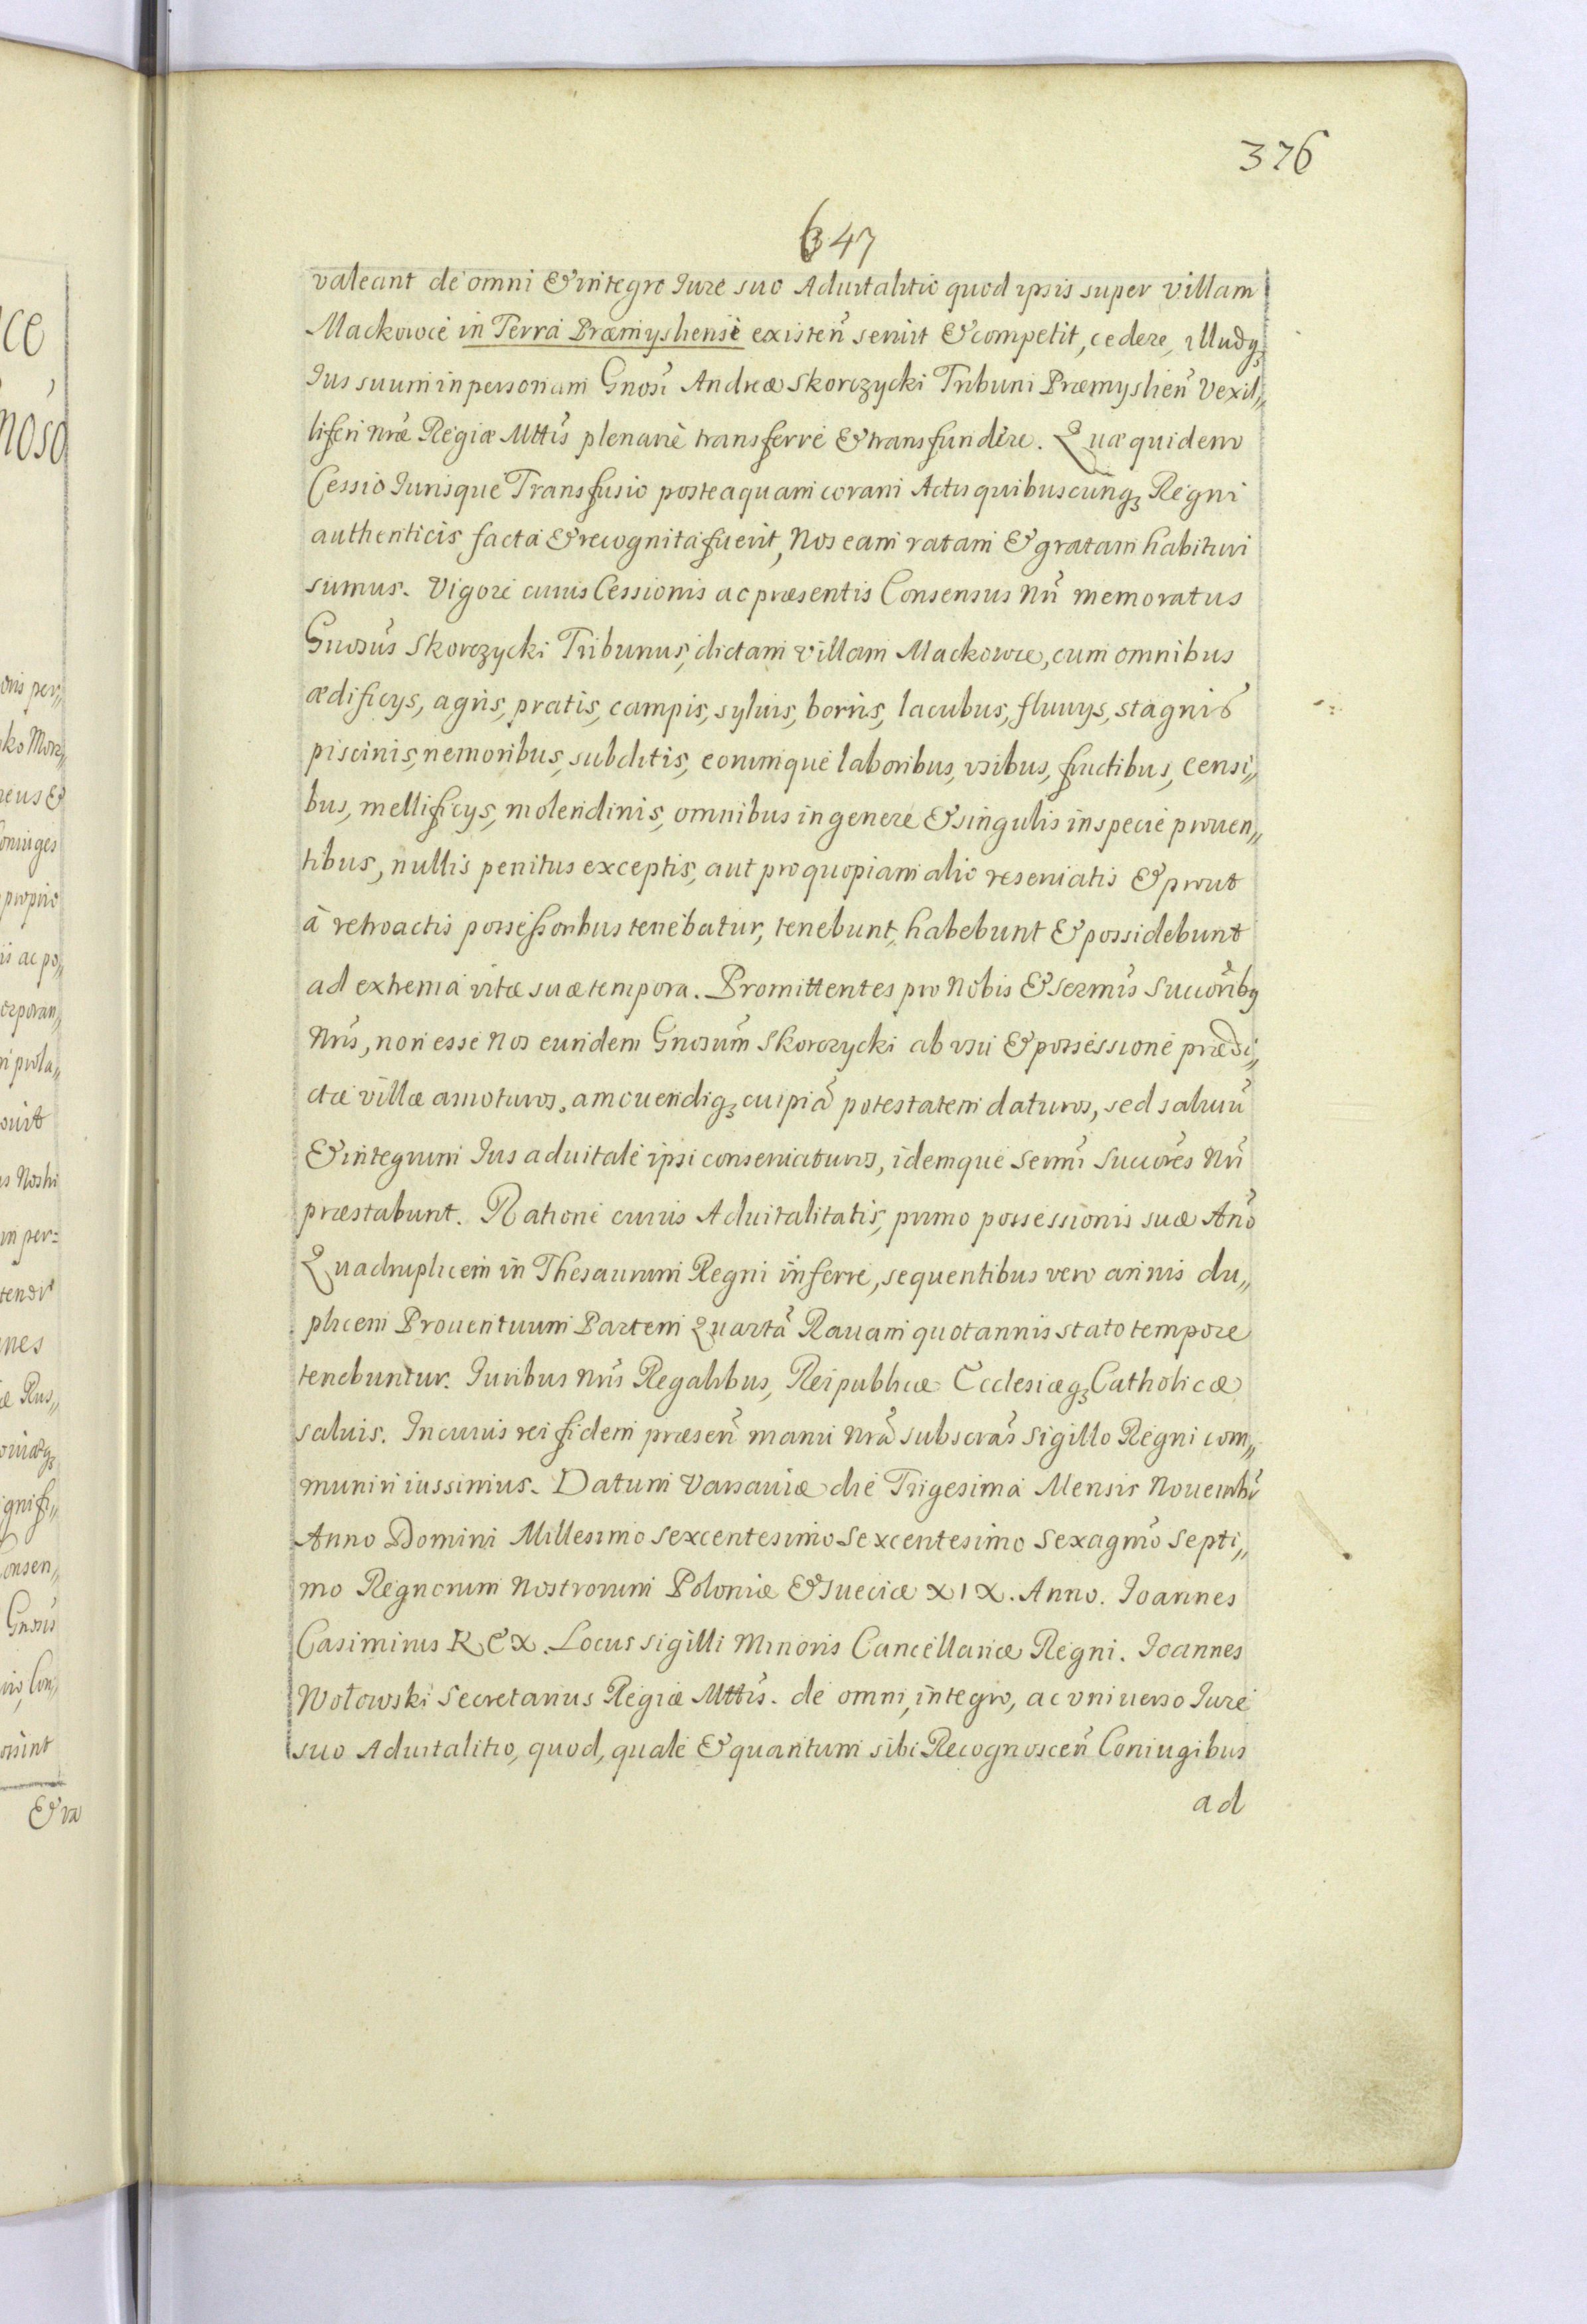 376
647
valeant de omni & integro Jure suo Aduitalitio quod ipsis super villam
Mackowce in Terra Præmysliensi existeñ seruit & competit, cedere, illudq₃
Ius suum in personam Gnosi Andreæ Skorczycki Tribuni Præmyslieñ Vexil„
liferi nræ Regiæ Mttis plenarie transferre & transfundere. Quæ quidem
Cessio Iurisque Transfusio posteaquam coram Actis quibuscunq₃ Regni
authenticis facta & recognita fuerit, Nos eam ratam & gratam habituri
sumus. Vigore cuius Cessionis ac præsentis Consensus Nri memoratus
Gnosus Skorczycki Tribunus, dictam villam Mackowce, cum omnibus
ædificys, agris, pratis, campis, syluis, borris, lacubus, fluuys, stagnis
piscinis, nemoribus, subditis, eorumque laboribus, vsibus, fructibus, censi„
bus, mellificys, molendinis, omnibus in genere & singulis in specie prouen„
tibus, nullis penitus exceptis, aut pro quopiam alio reseruatis & prout
â retroactis possessoribus tenebatur, tenebunt, habebunt & possidebunt
ad extrema vitæ suæ tempora. Promittentes pro Nobis & sermis Succoribq
Nris, non esse Nos eundem Gnosum Skorczycki ab vsu & possessione prædi„
ctæ villæ amoturos, amouendiq₃ cuipiã potestatem daturos, sed saluũ
& integrum Ius aduitale ipsi conseruaturos, idemque sermi Succores Nri
præstabunt. Ratione cuius Aduitalitatis, primo possessionis suæ Año
Quadruplicem in Thesaurum Regni inferre, sequentibus vero annis du„
plicem Prouentuum Partem Quartã Rauam quotannis stato tempore
tenebuntur. Iuribus nris Regalibus, Reipublicæ Ecclesiæq₃ Catholicæ
saluis. In cuius rei fidem præseñ manu nrã subscras sigillo Regni com„
muniri iussimus. Datum Varsauiæ die Trigesima Mensis Nouembr
Anno Domini Millesimo sexcentesimo Sexcentesimo Sexagmo Septi„
mo Regnorum Nostrorum Poloniæ & Sueciæ XIX. Anno. Ioannes
Casimirus REX. Locus sigilli Minoris Cancellariæ Regni. Ioannes
Wołowski Secretarius Regiæ Mttis. de omni, integro, ac vniuerso Iure
suo Aduitalitio, quod, quale & quantum sibi Recognosceñ Coniugibus
ad